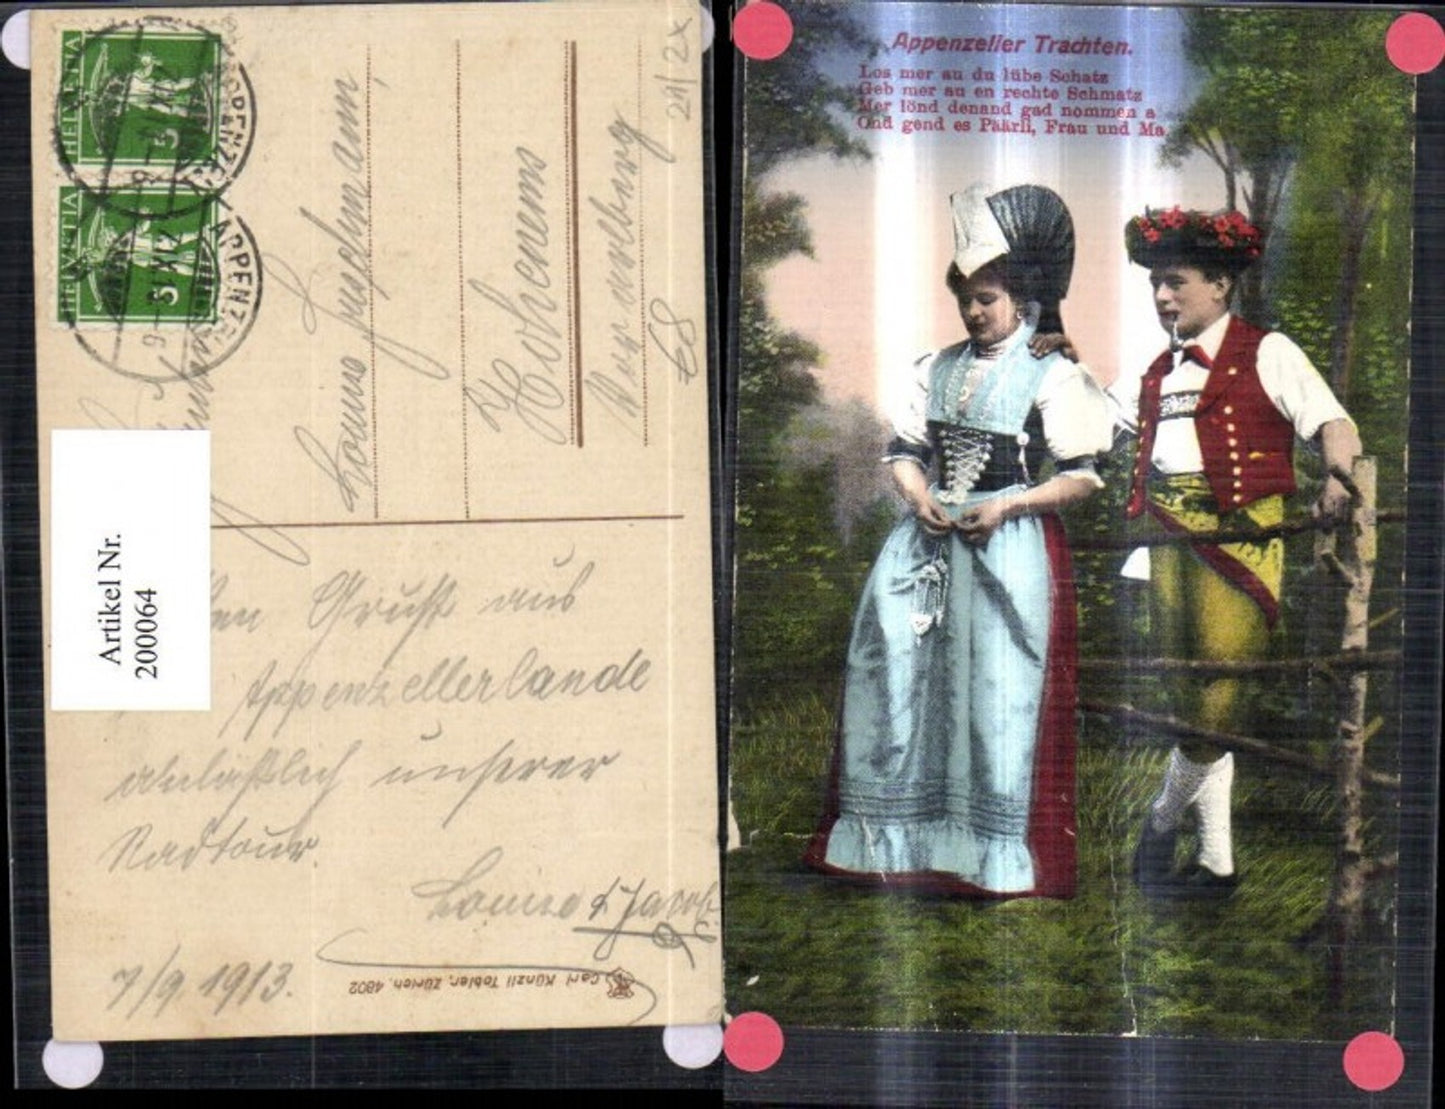 HELVETIA
HELVETIA
APPENZELL
APPENZELL
Artikel Nr.
200064
Hohenems
Vorarlberg
24/2X
€8
Gruß aus
Appenzellerlande
anläßlich unserer
Radtour.
Louise & Jacob
7/9. 1913.
Carl Künzli Tobler, Zürich, 4802
Appenzeller Trachten.
Los mer au du lübe Schatz
Geb mer au en rechte Schmatz
Mer lönd denand gad nommen a
Ond gend es Päärli, Frau und Ma.